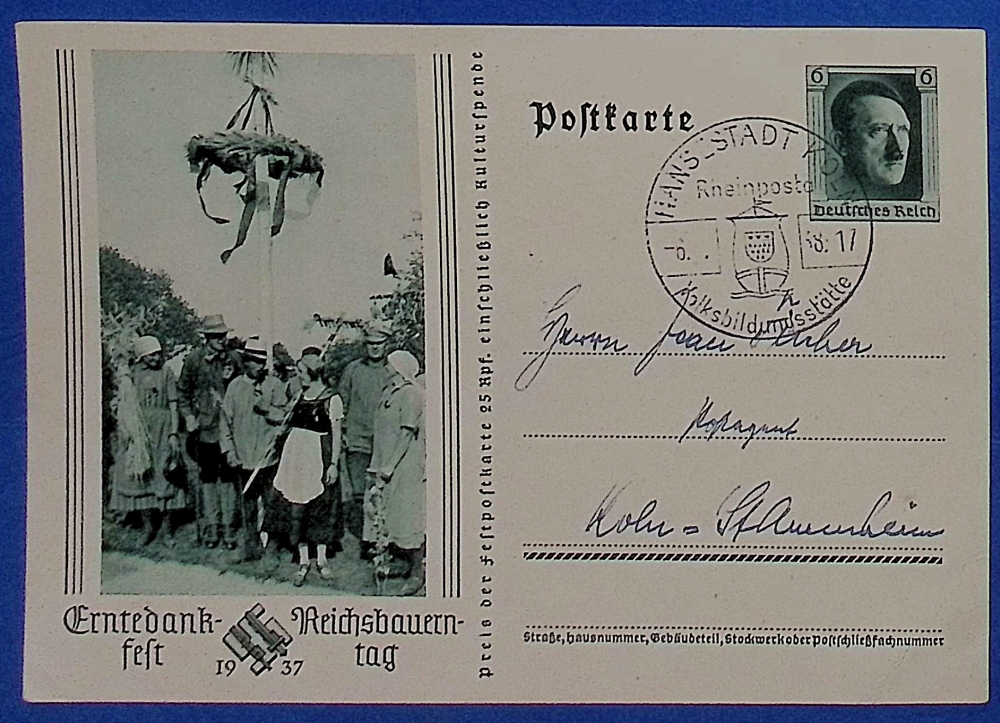 Erntedank-
fest
Reichsbauern-
tag
1937
Preis der Festpostkarte 25 Rpf. einschließlich Kulturspende
Postkarte
6 6
Deutsches Reich
HANSESTADT KÖLN
Rheinposta
-6. 38. 17
Volksbildungsstätte
Herrn Jean
Postagent
Köln =
Straße, Hausnummer, Gebäudeteil, Stockwerk oder Postschließfachnummer